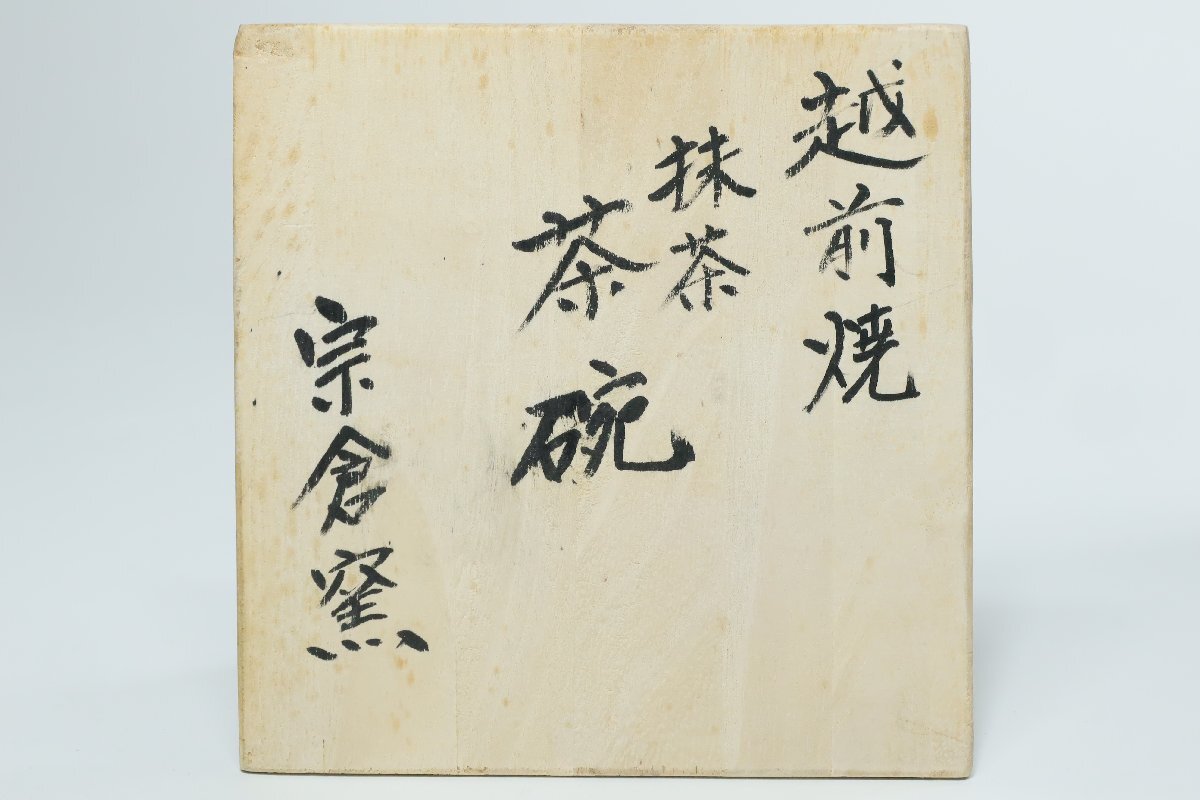 越前焼
抹茶
茶碗
宗倉窯